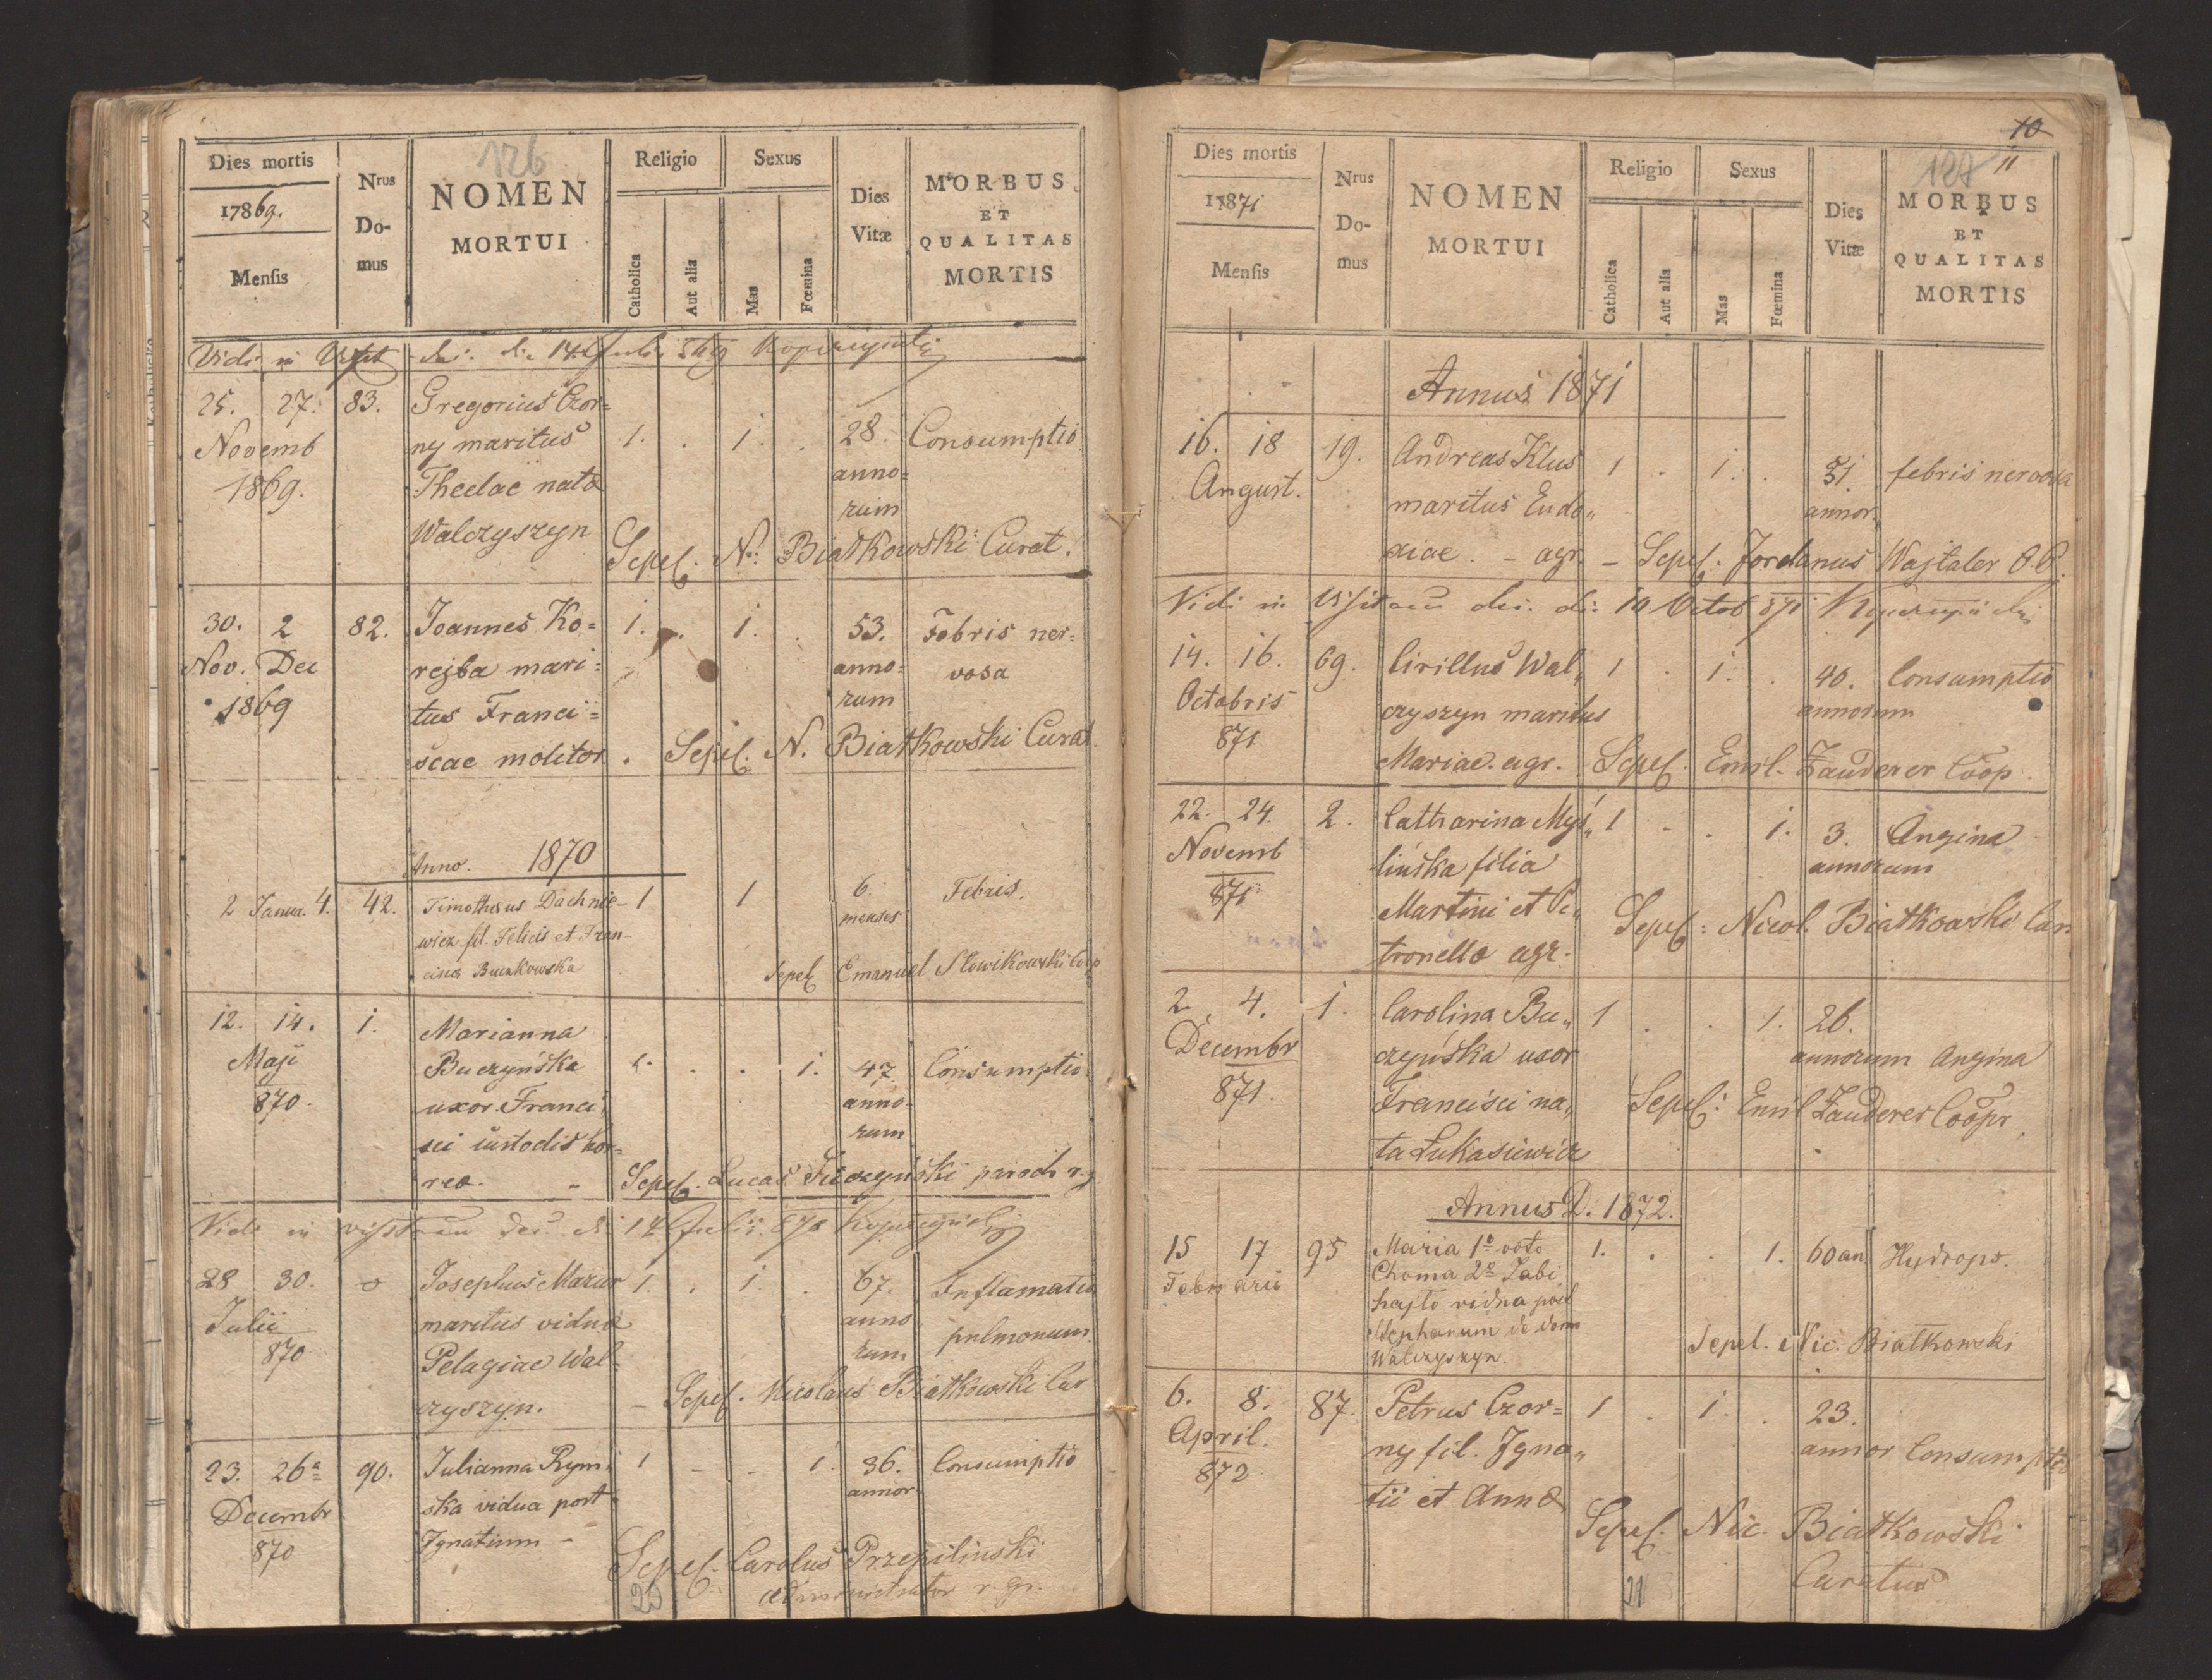 126
Dies mortis
17869.
Mensis
Nrus
Do-
mus
NOMEN
MORTUI
Religio
Catholica
Aut alia
Sexus
Mas
Fœmina
Dies
Vitæ
MORBUS
ET
QUALITAS
MORTIS
Vidi in
25. 27. 83. Gregorius Czor=
Novemb ny maritus 1. . 1. . 28. Consumptio
1869. Theclae nata anno=
rum
Walczyszyn Sepel. N. Białkowski Curat.
30. 2 82. Joannes Ko= 1. . 1. . 53. Febris ner=
Nov. Dec rejba mari= anno= vosa
1869 tus Franci= rum
scae molitor. Sepel. N. Białkowski Curat.
Anno. 1870
2 Janua. 4. 42. Timotheus Dachnie- 1 1 6. Febris.
wicz fil. Felicis et Fran- menses
cisca Buczkowska Sepel Emanuel Słowikowski Coop
12. 14. 1. Marianna
Maji Buczyńska 1. . . 1. 47 Consumptio
870. uxor Franci anno-
sci custodis hor= rum
rea. - Sepel. Lucas paroch r. g
Vidi in 14 Julii 870
28 30. o Josephus Mazur 1. . 1. . 67. Inflamatio
Julii maritus vidua anno pulmonum.
870 Pelagiae Wal- rum
czyszyn. - Sepel. Nicolaus Białkowski Cur
23. 26a 90. Julianna Rym= 1 - - 1. 36. Consumptio
Decembr ska vidua post annor
870 Ignatium -
Sepel. Carolus Przepiliński
Administrator r. gr.
20
10
127 11
Dies mortis
17871
Mensis
Nrus
Do-
mus
NOMEN
MORTUI
Religio
Catholica
Aut alia
Sexus
Mas
Fœmina
Dies
Vitæ
MORBUS
ET
QUALITAS
MORTIS
Annus 1871
16. 18 19. Andreas Klus 1 . 1. . 51. febris nervosa
August. maritus Eudo„ annor.
xiae. - agr. - Sepel: Jordanus Wajtaler O.P.
Vidi in Octob 871
14. 16. 69. Cirillus Wal„ 1 . 1. . 40. Consumptio
Octobris czyszyn maritus annorum
871 Mariae. agr. Sepel. Emil. Zauderer Coop.
22. 24. 2. Catharina Myś„ 1 . . 1. 3. Angina
Novemb lińska filia annorum
871 Martini et Pe„
tronella agr. Sepel: Nicol. Białkowski Cur
2. 4. 1. Carolina Bu„ 1 . . 1. 26.
Decembr czyńska uxor annorum Angina
871. Francisci na„ Sepel: Emil Zauderer Coopr
ta Łukasiewicz
Annus D. 1872.
15 17 95 Maria 1o voto 1. . . 1. 60 an Hydrops.
Februarii Choma 2o Zabi
hajło vidua post
Stephanum de domo Sepel. Nic. Białkowski
Walczyszyn.
6. 8. 87. Petrus Czor= 1 . 1. . 23.
April. ny fil. Igna„ annor Consumptio
872 tii et Anna
Sepel. Nic. Białkowski
Curatus
21